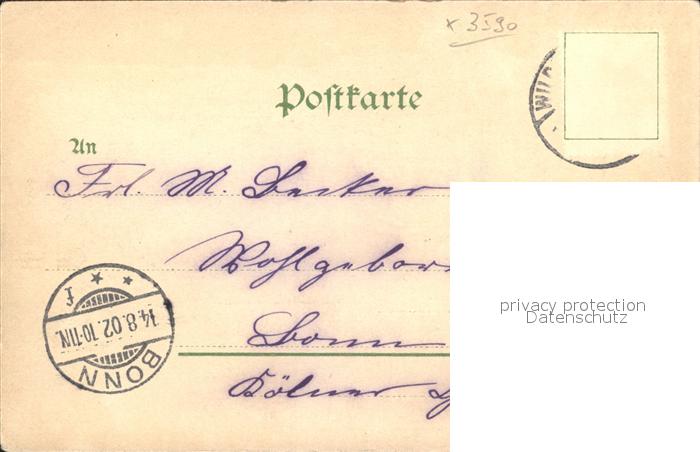 * 3590
Postkarte
An
Frl. M. Becker
Wohlgebor
Bonn
Kölner
BONN
14.8.02.10-11N.
f
privacy protection
Datenschutz